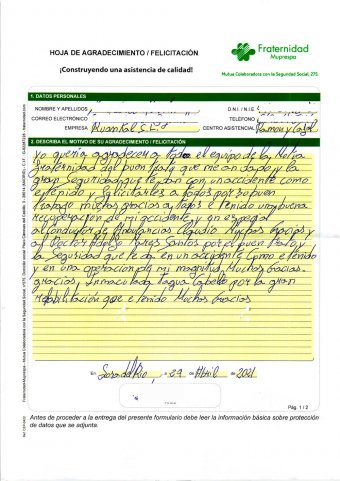 HOJA DE AGRADECIMIENTO / FELICITACIÓN
Fraternidad
Muprespa
¡Construyendo una asistencia de calidad!
Mutua Colaboradora con la Seguridad Social, 275
1. DATOS PERSONALES
NOMBRE Y APELLIDOS
D.N.I. / N.I.E.
CORREO ELECTRÓNICO
TELÉFONO
EMPRESA
CENTRO ASISTENCIAL Ramon y Cajal
2. DESCRIBA EL MOTIVO DE SU AGRADECIMIENTO / FELICITACIÓN
yo queria agradecer a todo el equipo de la Mutua
fraternidad del buen trato que me an dado y la
gran Seguridad que te dan con un accidente como
e tenido y felicitarles a todos por su buen
trabajo muchas gracias a todos e tenido una buena
recuperacion de mi accidente y en especial
al Conductor de Ambulancias Claudio Muchas Gracias y
al Doctor Santos por el buen trato y
la Seguridad que te da en un accidente Como e tenido
y en una operacion de mi magnitud Muchas Gracias
gracias, Inmaculada Cabello por la gran
rehabilitación que e tenido Muchas Gracias
En a 29 de Abril de 2021
Pág. 1 / 2
Antes de proceder a la entrega del presente formulario debe leer la información básica sobre protección
de datos que se adjunta.